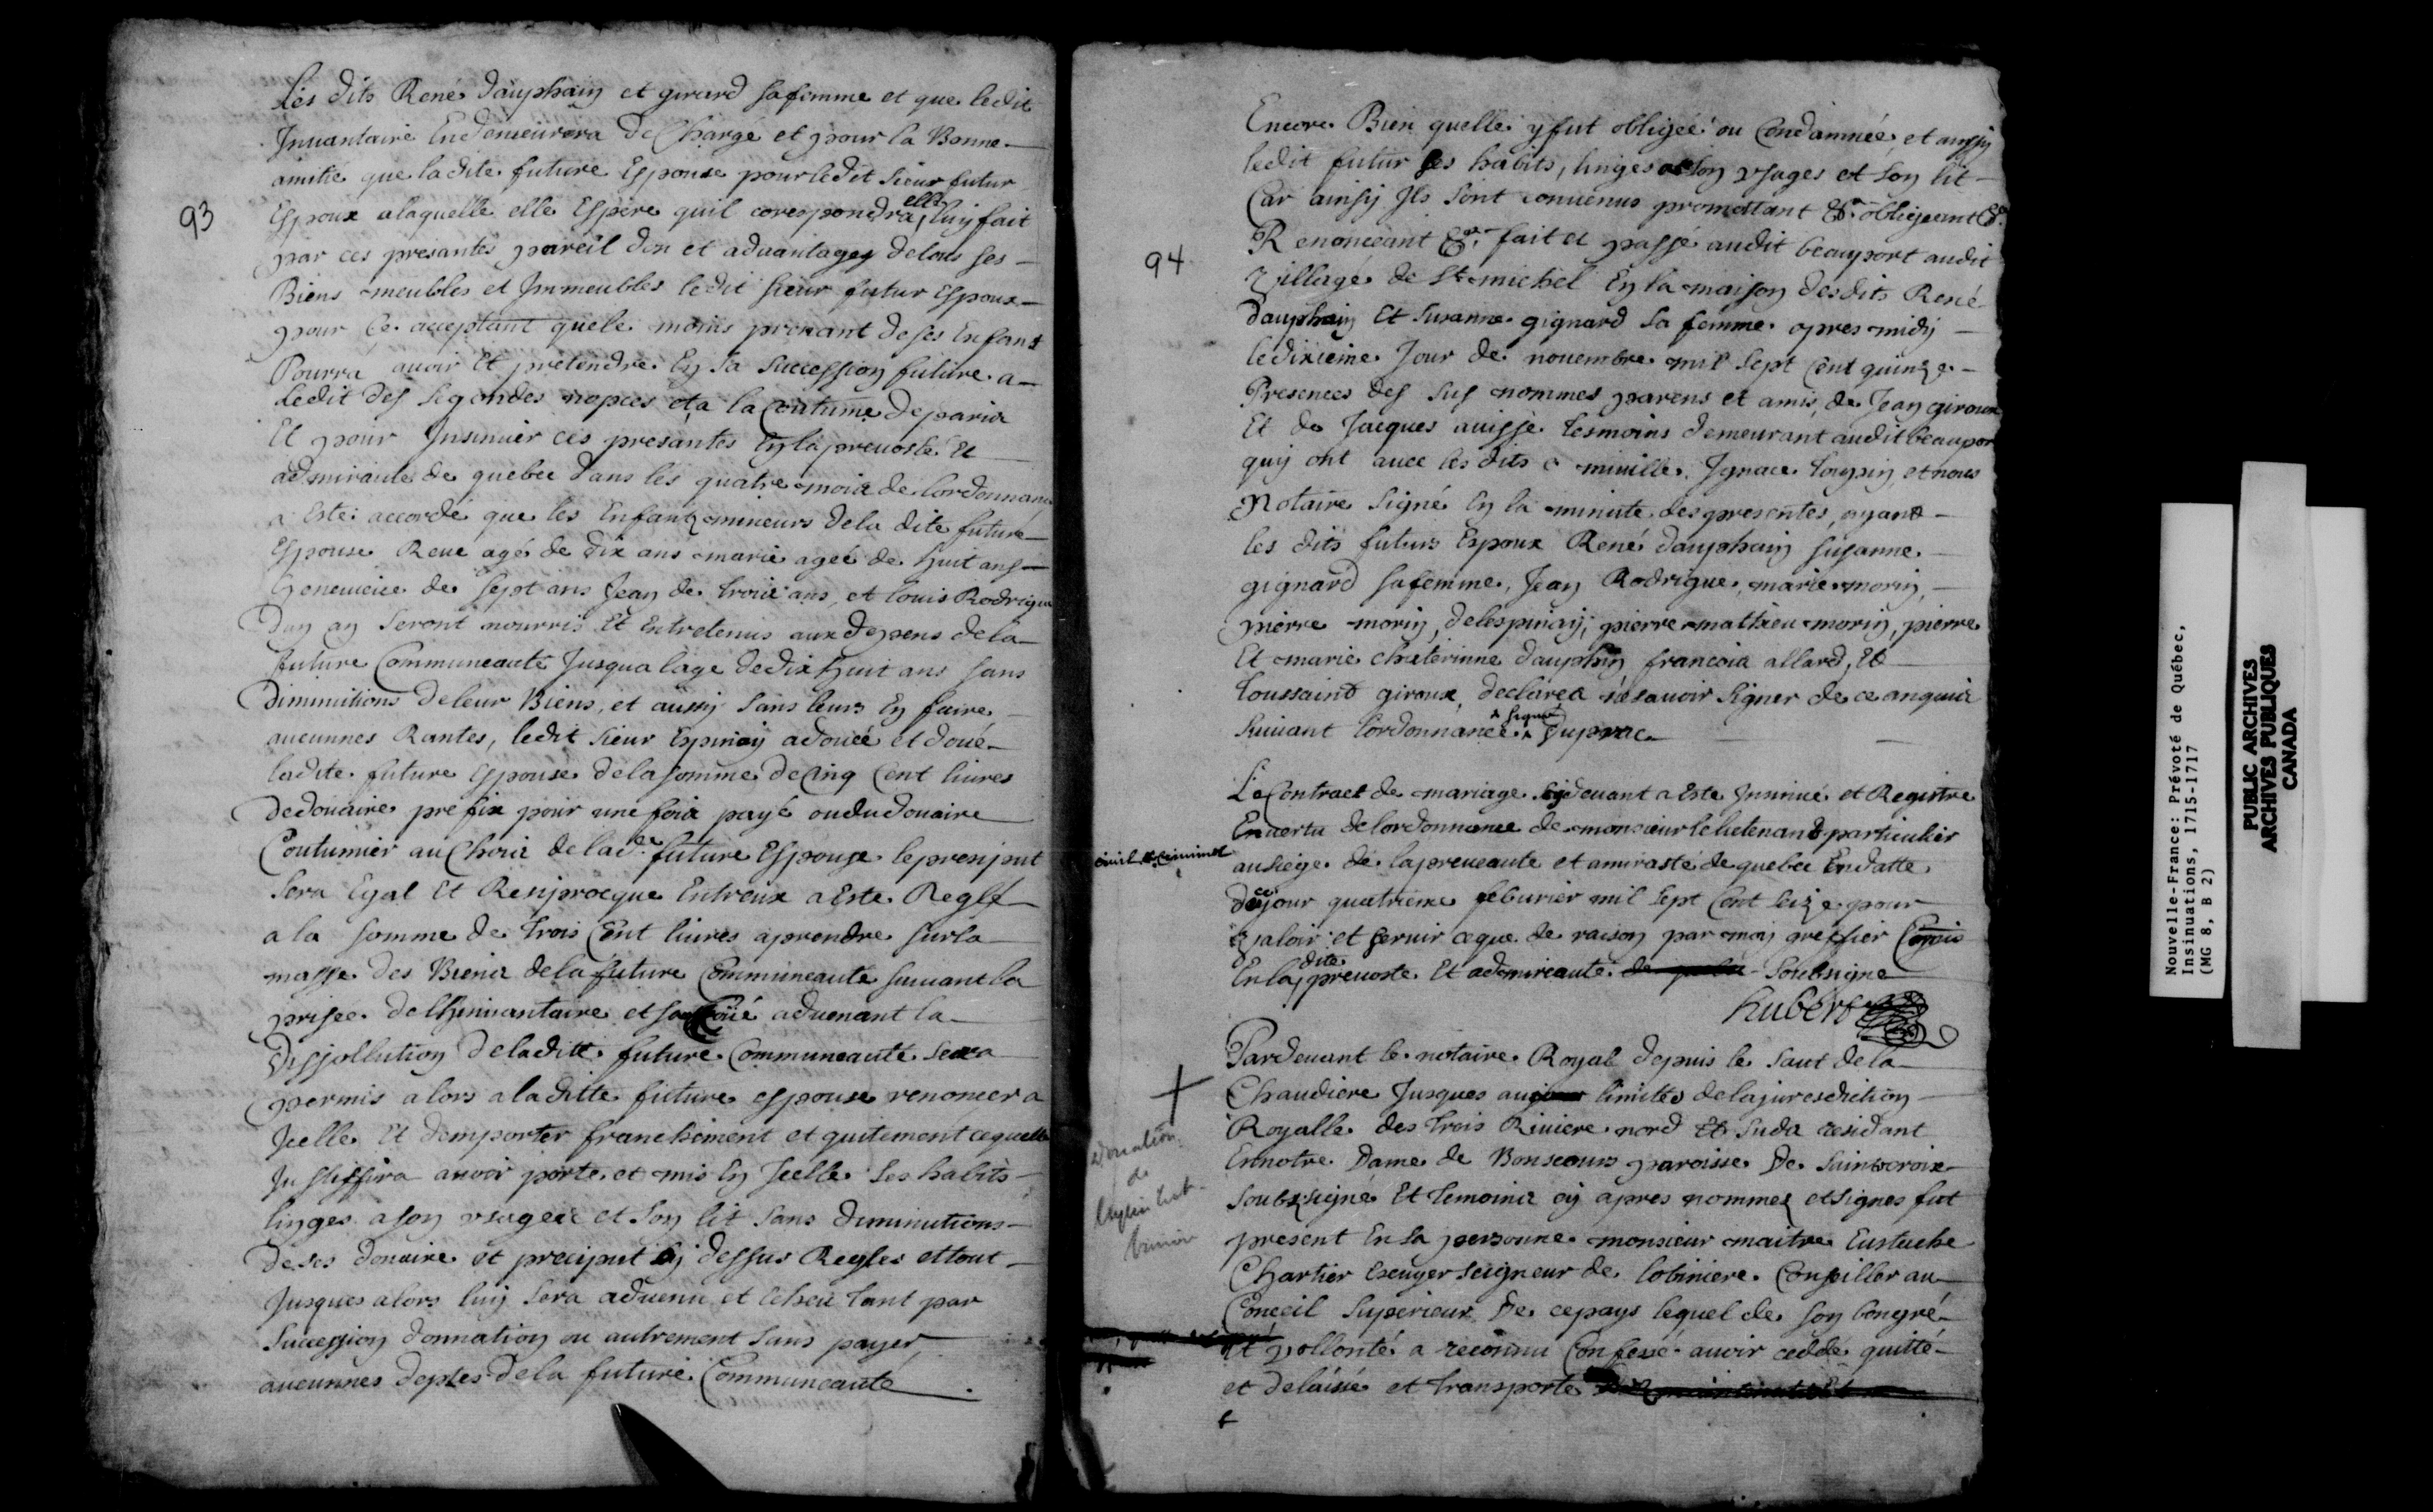 93
Les dits René dauphain et girard sa femme et que ledit
Inuantaire En demeurera de Chargé et pour la Bonne
amitié que ladite future Espouse pour ledit sieur futur
Espoux alaquelle elle Espere quil corespondra, elle luy fait
par ces presantes pareil don et aduantages de tous ses
Biens meubles et Immeubles ledit sieur futur Espoux
pour ce acceptant quele moins prenant de ses Enfans
Pourra auoir Et pretendre En sa succession future a
Ledit des segondes nopces et a la Coutume de paris
Et pour Insinuer ces presantes En la preuosté Et
admirauté de quebec dans les quatre mois de lordonnance
a Esté accorde que les Enfans mineurs dela dite future
Espouse René agé de dix ans marie ageé de huit ans
Geneuieue de sept ans Jean de trois ans, et Louis Rodrigue
Dun an seront nourris Et Entretenus aux depens de la
future Communeauté Jusqua lage de dix huit ans sans
Diminutions de leur Biens, et aussy sans leurs En faire
aucunnes Rantes, ledit sieur Espinay a doüé et doüé
ladite future Espouse dela somme de Cinq Cent liures
de doüaire prefix pour une fois payé ou du doüaire
Coutumier au Choix de lad.e future Espouse le preciput
sera Egal Et Resiprocque Entreux a Este Reglé
a la somme de trois Cent liures a prendre sur la
masse des Biens dela future Communeauté suiuant la
prisée de lhinuantaire et aduenant la
Dissollution de ladite future Communeauté sera
permis alors a la ditte future espouse renoncer a
Jcelle Et demporter franchement et quitement ce quelle
Justiffira auoir porté et mis En Jcelle ses habits
linges a son usage et son lit sans diminutions
de ses doüaire et preciput cy dessus Reglés et tout
Jusques alors luy sera aduenu et Echeu tant par
succession donnation ou autrement sans payer
aucunnes deptes dela future Communeauté
94
Encore Bien quelle y fut obligée ou Condamnée, et aussy
ledit futur ses habits, linges a son usages et son lit
Car ainsy Ils sont conuenus promettant &.a obligeant &.a
Renonceant &.a fait et passé audit beauport audit
Village de St michel En la maison desdits René
dauphain Et susanne gignard sa femme apres midy
le dixieme Jour de nouembre mil sept Cent quinze
Presences des sus nommes parens et amis, de Jean giroux
Et de Jacques auisse tesmoins demeurant audit beauport
quy ont auec les dits miuille, Ignace toupin et nous
Notaire signé En la minute des presentes, ayant
les dits futurs Espoux René dauphain susanne
gignard sa femme, Jean Rodrigue, marie morin,
pierre morin, delespinay, pierre mathieu morin, pierre
Et marie chaterinne dauphin francois allard, Et
toussaint giroux, declarea ne sauoir signer de ce anquis
suiuant lordonnance. a signé Duprac
Le Contract de mariage cy deuant a Este Insinué et Registre
En uertu de lordonnance de monsieur le lietenant particulier
ciuil et criminel
au siege de la preueauté et amirasté de quebec En datte
de ce jour quatrieme feburier mil sept Cent seize pour
Valoir et seruir ce que de raison par moy greffier Comis
En la dite preuosté Et admireauté soubsigné
hubert
donation
de
Pardeuant le notaire Royal depuis le saut de la
Chaudiere Jusques au limites de la jurisdiction
Royalle des trois Riuiere nord Et suda residant
En notre Dame de Bonsecours paroisse De saintecroix
soubzsigné Et temoins cy apres nommez et signes fut
present En sa personne monsieur maitre Eustache
Chartier Escuyer seigneur de lotiniere Conseiller au
Conceil superieur De ce pays lequel de son bon gré
Et vollonté a reconnu Confessé auoir ceddé quitté
et delaissé et transporté
Nouvelle-France: Prévoté de Québec,
Insinuations, 1715-1717
(MG 8, B 2)
PUBLIC ARCHIVES
ARCHIVES PUBLIQUES
CANADA